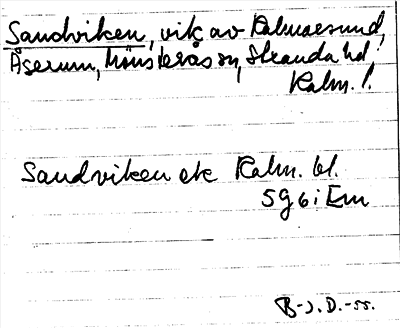 Sandviken, vik av Kalmarsund,
Åserum, Mönsterås sn, Stranda hd
Kalm. l.
Sandviken ek Kalm. bl.
5 g 6 i Em
B-J. D. -55.